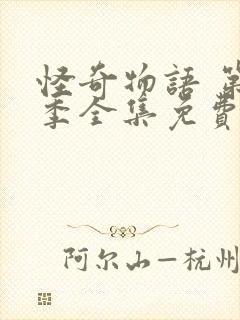 怪奇物語 第
季全集免費
阿尔山–杭州